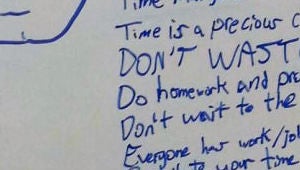 Time
Time is a precious
DON'T WAST
Do homework and
Don't wait to the
Everyone has work/jo
to your time